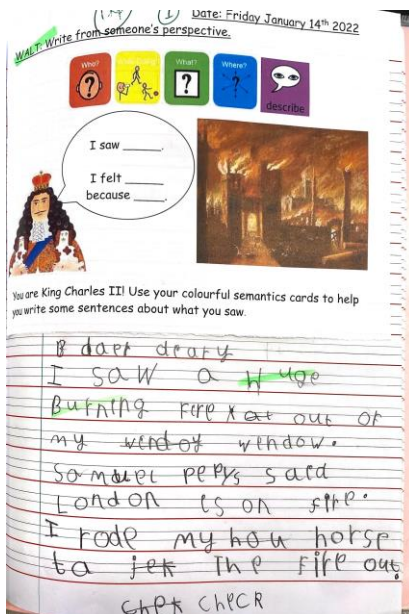 Date: Friday January 14th 2022
WALT: Write from someone's perspective.
Who?
What?
Where?
describe
I saw ______.
I felt ______
because _____.
You are King Charles II! Use your colourful semantics cards to help
you write some sentences about what you saw.
B daer deary
I saw a Huge
Burning Fire x at out of
my windoy window.
Samuel pepys said
London is on fire.
I rode my hou horse
ta jek The Fire out
chek check